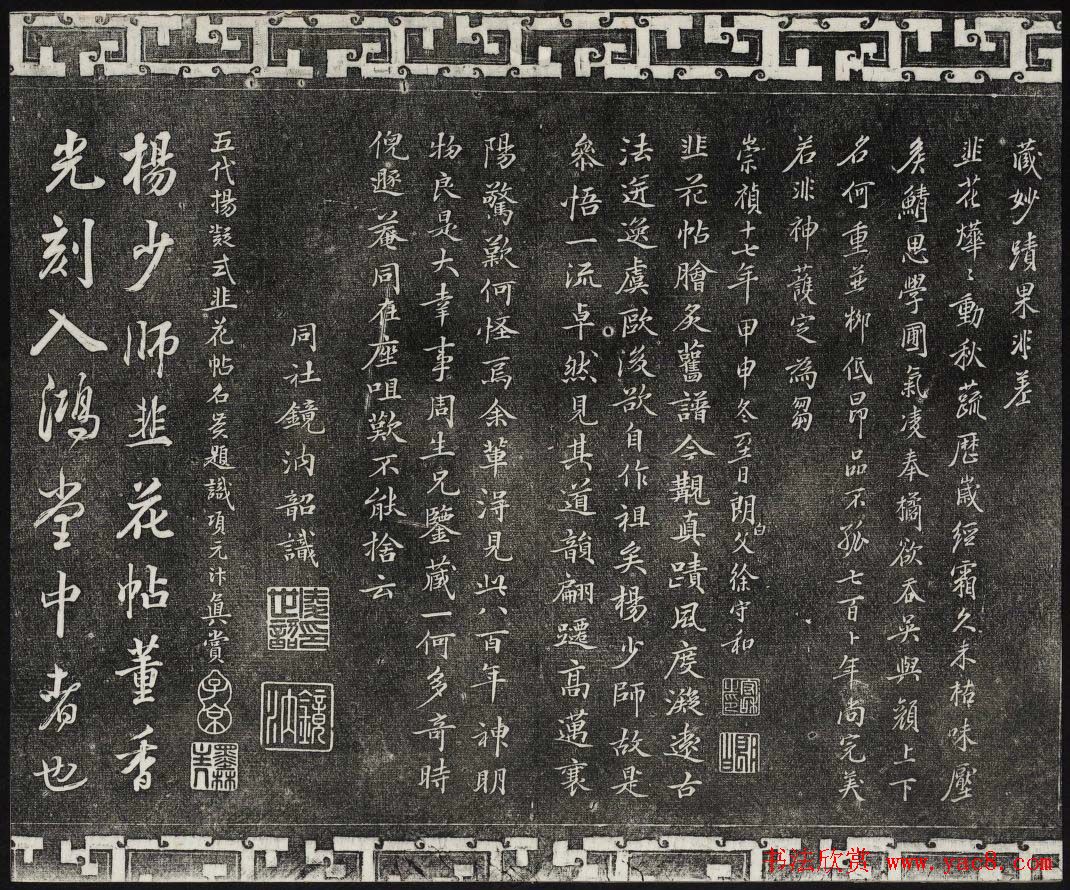 藏妙蹟果非差
韭花燁〻動秋蔬歷歲經霜久未枯味壓
矦鯖思學圃氣凌奉橘欲吞吳與頡上下
名何重並柳低昂品不孤七百卜年尚完美
若非神護定為芻
崇禎十七年甲申冬至日朗白父徐守和
韭花帖膾炙舊譜今覯真蹟風度凝遠古
法迸逸虞歐後欲自作祖矣楊少師故是
叅悟一流卓然見其道韻翩躚高邁襄
陽驚歎何怪焉余輩淂見此八百年神明
物良是大幸事周生兄鑒藏一何多奇時
倪遯菴同在座咀歎不能捨云
同社鏡汭韶識
五代楊凝式韭花帖名賢題識項元汴真賞
子京
墨林
楊少師韭花帖董香
光刻入鴻堂中者也
书法欣赏 www.yac8.com